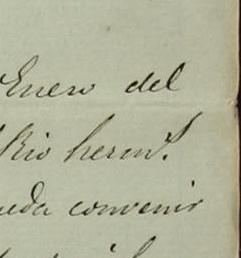 Enero del
Rio herm.ˢ
ueda convenir